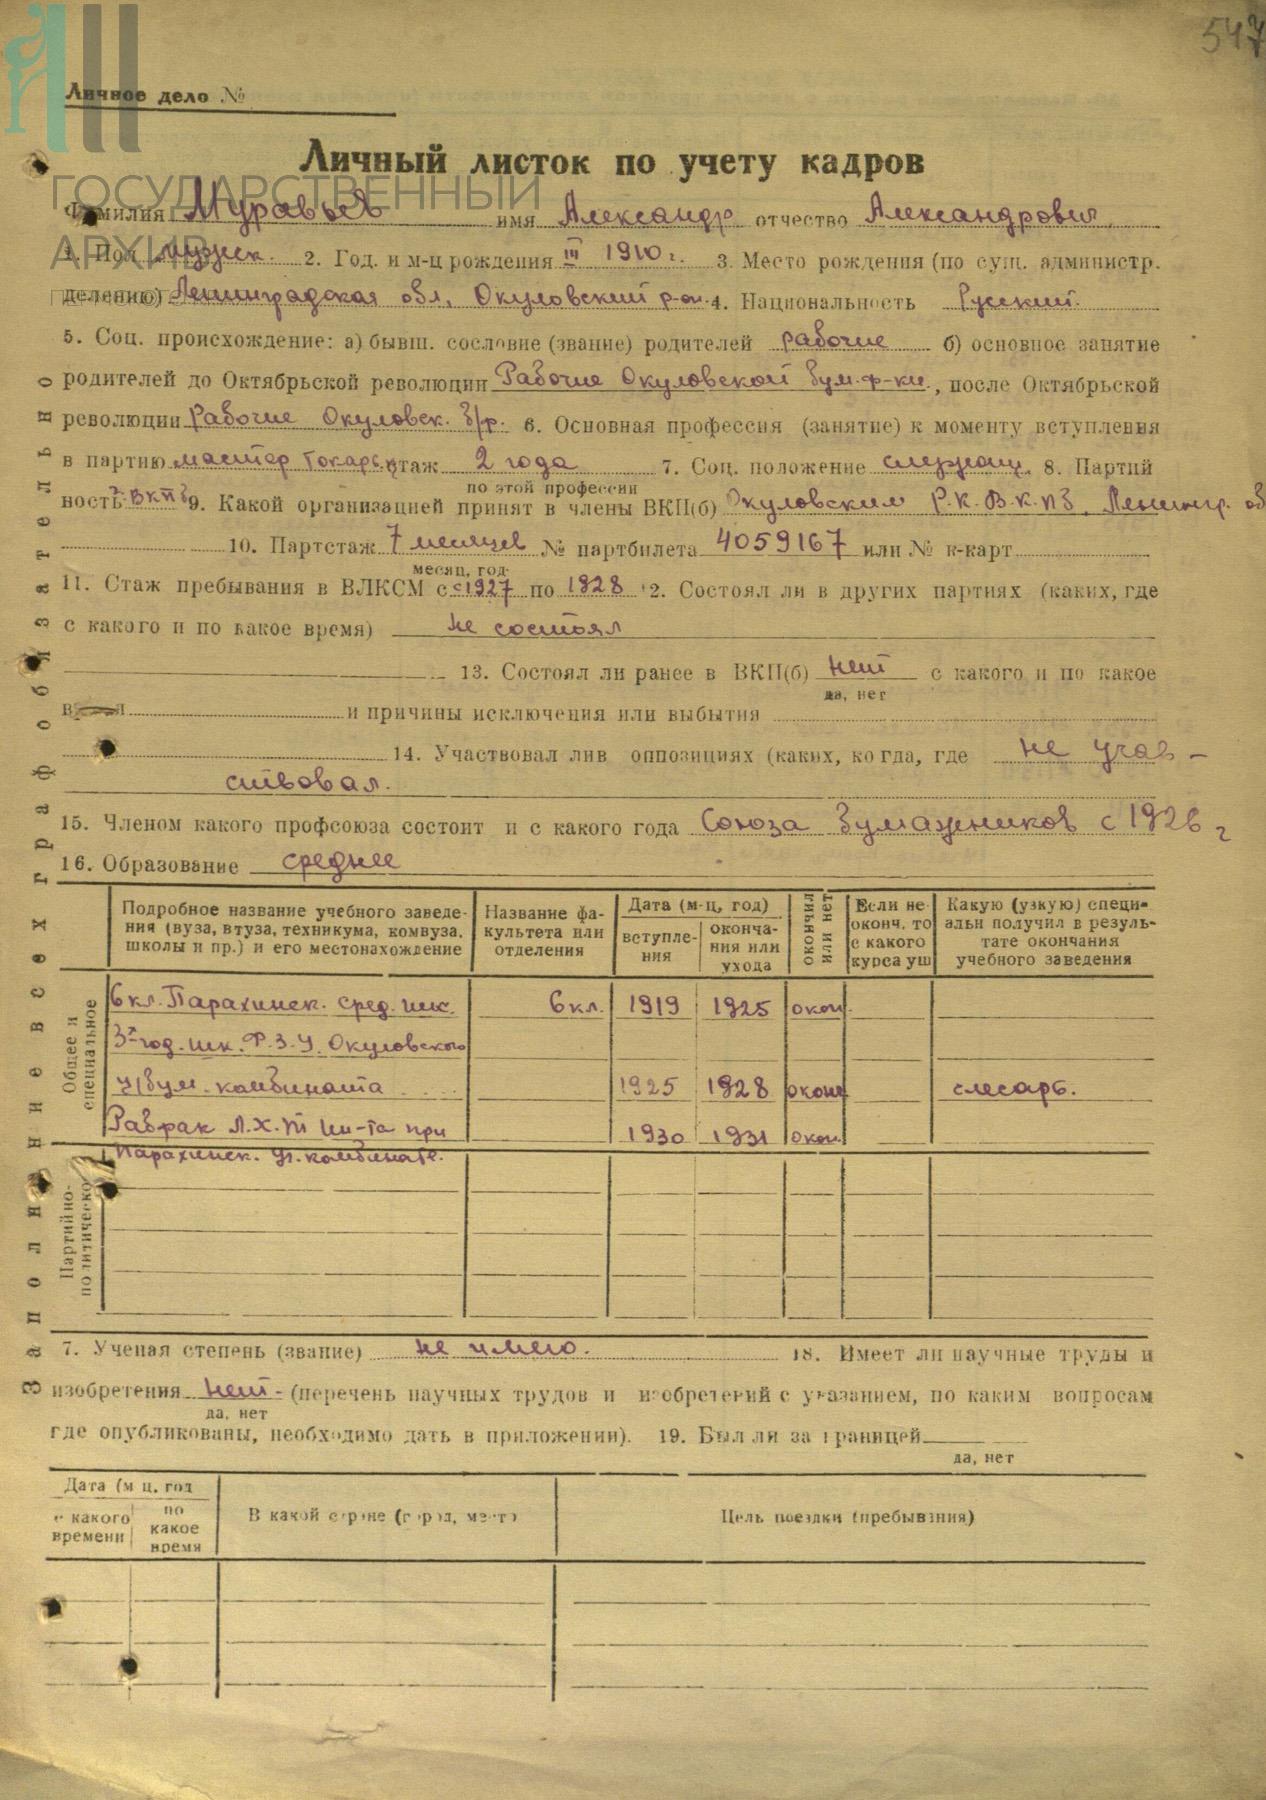 547
Личное дело №
ГОСУДАРСТВЕННЫЙ
АРХИВ
Личный листок по учету кадров
Фамилия Муравьев имя Александр отчество Александрович
1. Пол мужск. 2. Год. и м-ц рождения III 1910 г. 3. Место рождения (по сущ. администр.
делению) Ленинградская обл, Окуловский р-он. 4. Национальность Русский.
5. Соц. происхождение: а) бывш. сословие (звание) родителей рабочие б) основное занятие
родителей до Октябрьской революции Рабочие Окуловской бум. ф-ки, после Октябрьской
революции Рабочие Окуловск. б/ф. 6. Основная профессия (занятие) к моменту вступления
в партию мастер токарь стаж 2 года 7. Соц. положение служащ. 8. Партий
по этой профессии
ность ВКПб 9. Какой организацией принят в члены ВКП(б) Окуловским Р.К.В.К.Пб. Ленингр. об
10. Партстаж 7 месяцев № партбилета 4059167 или № к-карт
месяц, год
11. Стаж пребывания в ВЛКСМ с с 1927 по 1928 12. Состоял ли в других партиях (каких, где
с какого и по какое время) не состоял
13. Состоял ли ранее в ВКП(б) нет с какого и по какое
да, нет
время и причины исключения или выбытия
14. Участвовал лив оппозициях (каких, когда, где не учав-
ствовал.
15. Членом какого профсоюза состоит и с какого года Союза бумажников с 1926 г
16. Образование среднее
Подробное название учебного заведе-
ния (вуза, втуза, техникума, комвуза,
школы и пр.) и его местонахождение
Название фа-
культета или
отделения
Дата (м-ц, год)
вступле-
ния
оконча-
ния или
ухода
окончил
или нет
Если не
оконч. то
с какого
курса уш
Какую (узкую) специ-
альн получил в резуль-
тате окончания
учебного заведения
Общее и
специальное
6 кл. Парахинск. сред. шк. 6 кл. 1919 1925 окон.
3х год. шк. Ф.З.У. Окуловского
ц/бум. комбината 1925 1928 оконч слесарь.
Рабфак Л.Х.Т.И ин-та при 1930 1931 окон.
Парахинск. ц. комбинате.
Партийно-
политическо
7. Ученая степень (звание) не имею. 18. Имеет ли научные труды и
изобретения нет- (перечень научных трудов и изобретений с указанием, по каким вопросам
да, нет
где опубликованы, необходимо дать в приложении). 19. Был ли за границей
да, нет
Дата (м ц, год
с какого
времени
по
какое
время
В какой стране (город, место)
Цель поездки (пребывания)
Заполнение всех граф обязательно